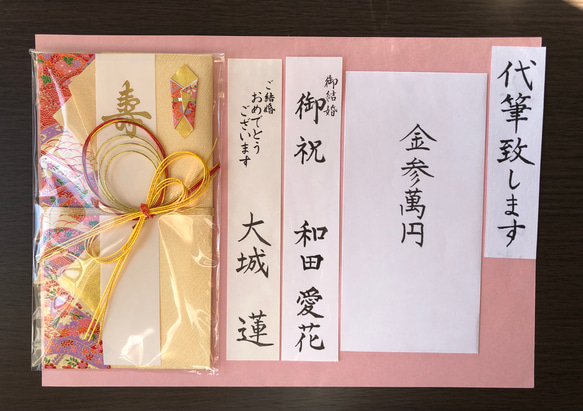 代筆致します
金参萬円
御結婚
御祝
和田愛花
ご結婚
おめでとう
ございます
大城 蓮
寿